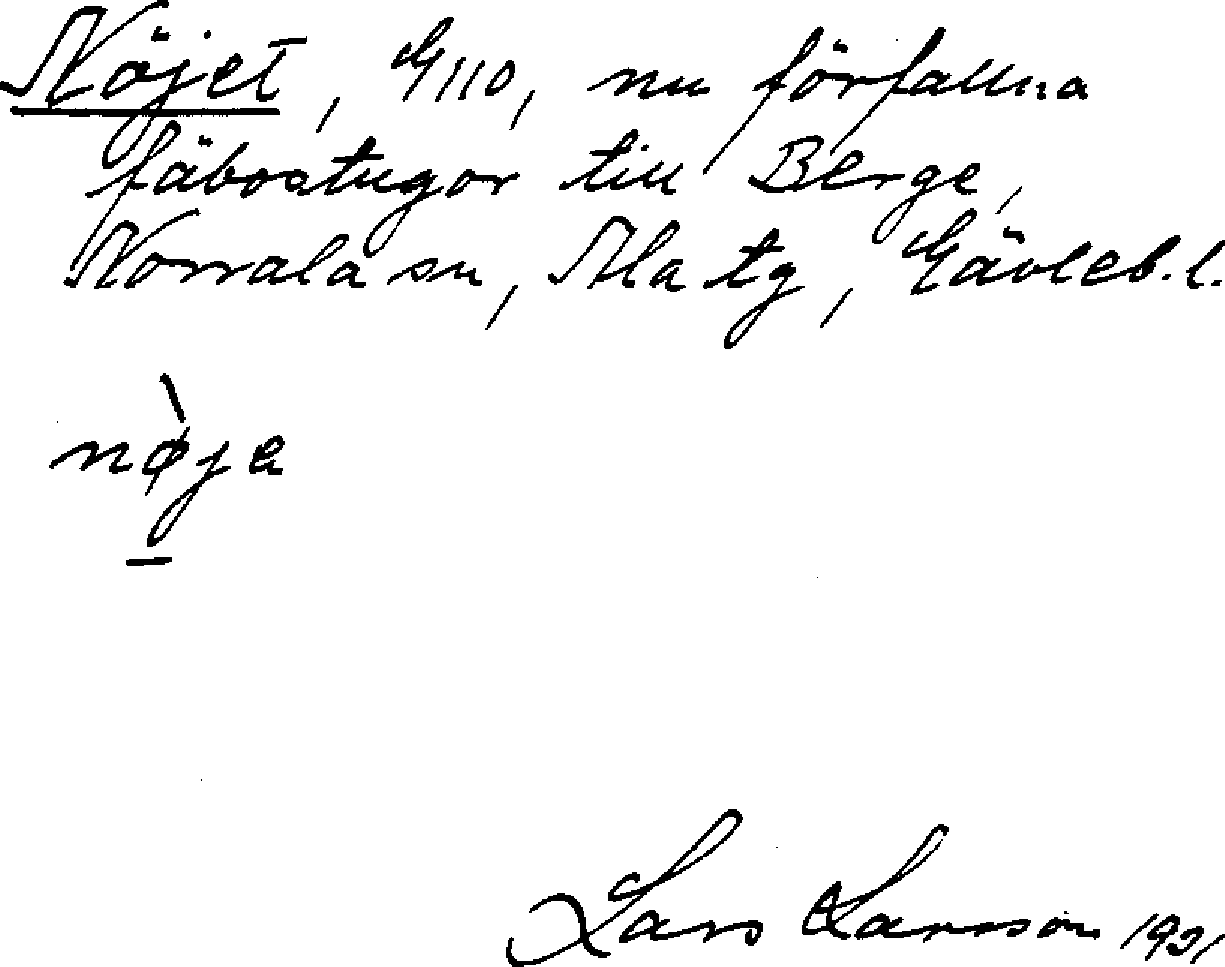 Nöjet, G110, nu förfallna
fäbostugor till Berge,
Norrala sn, Ala tg, Gävleb.l.
nø̀ja
Lars Larsson 1931